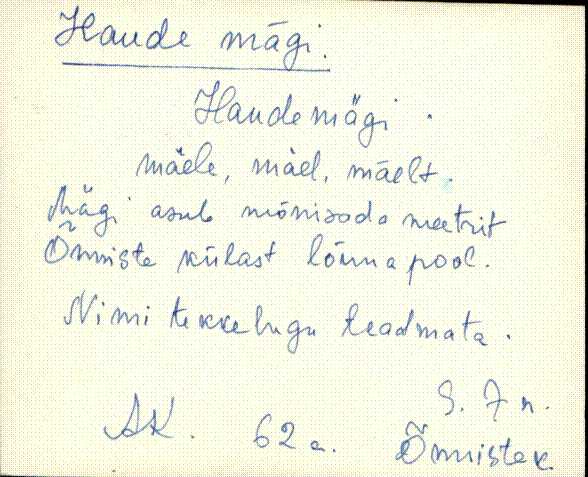 Haude mägi.
Haudemägi.
mäele, mäel, mäelt.
Mägi asub mõnisada meetrit
Õmmiste külast lõuna pool.
Nimi tekkelugu teadmata.
AK. 62 a. Õmmiste k.